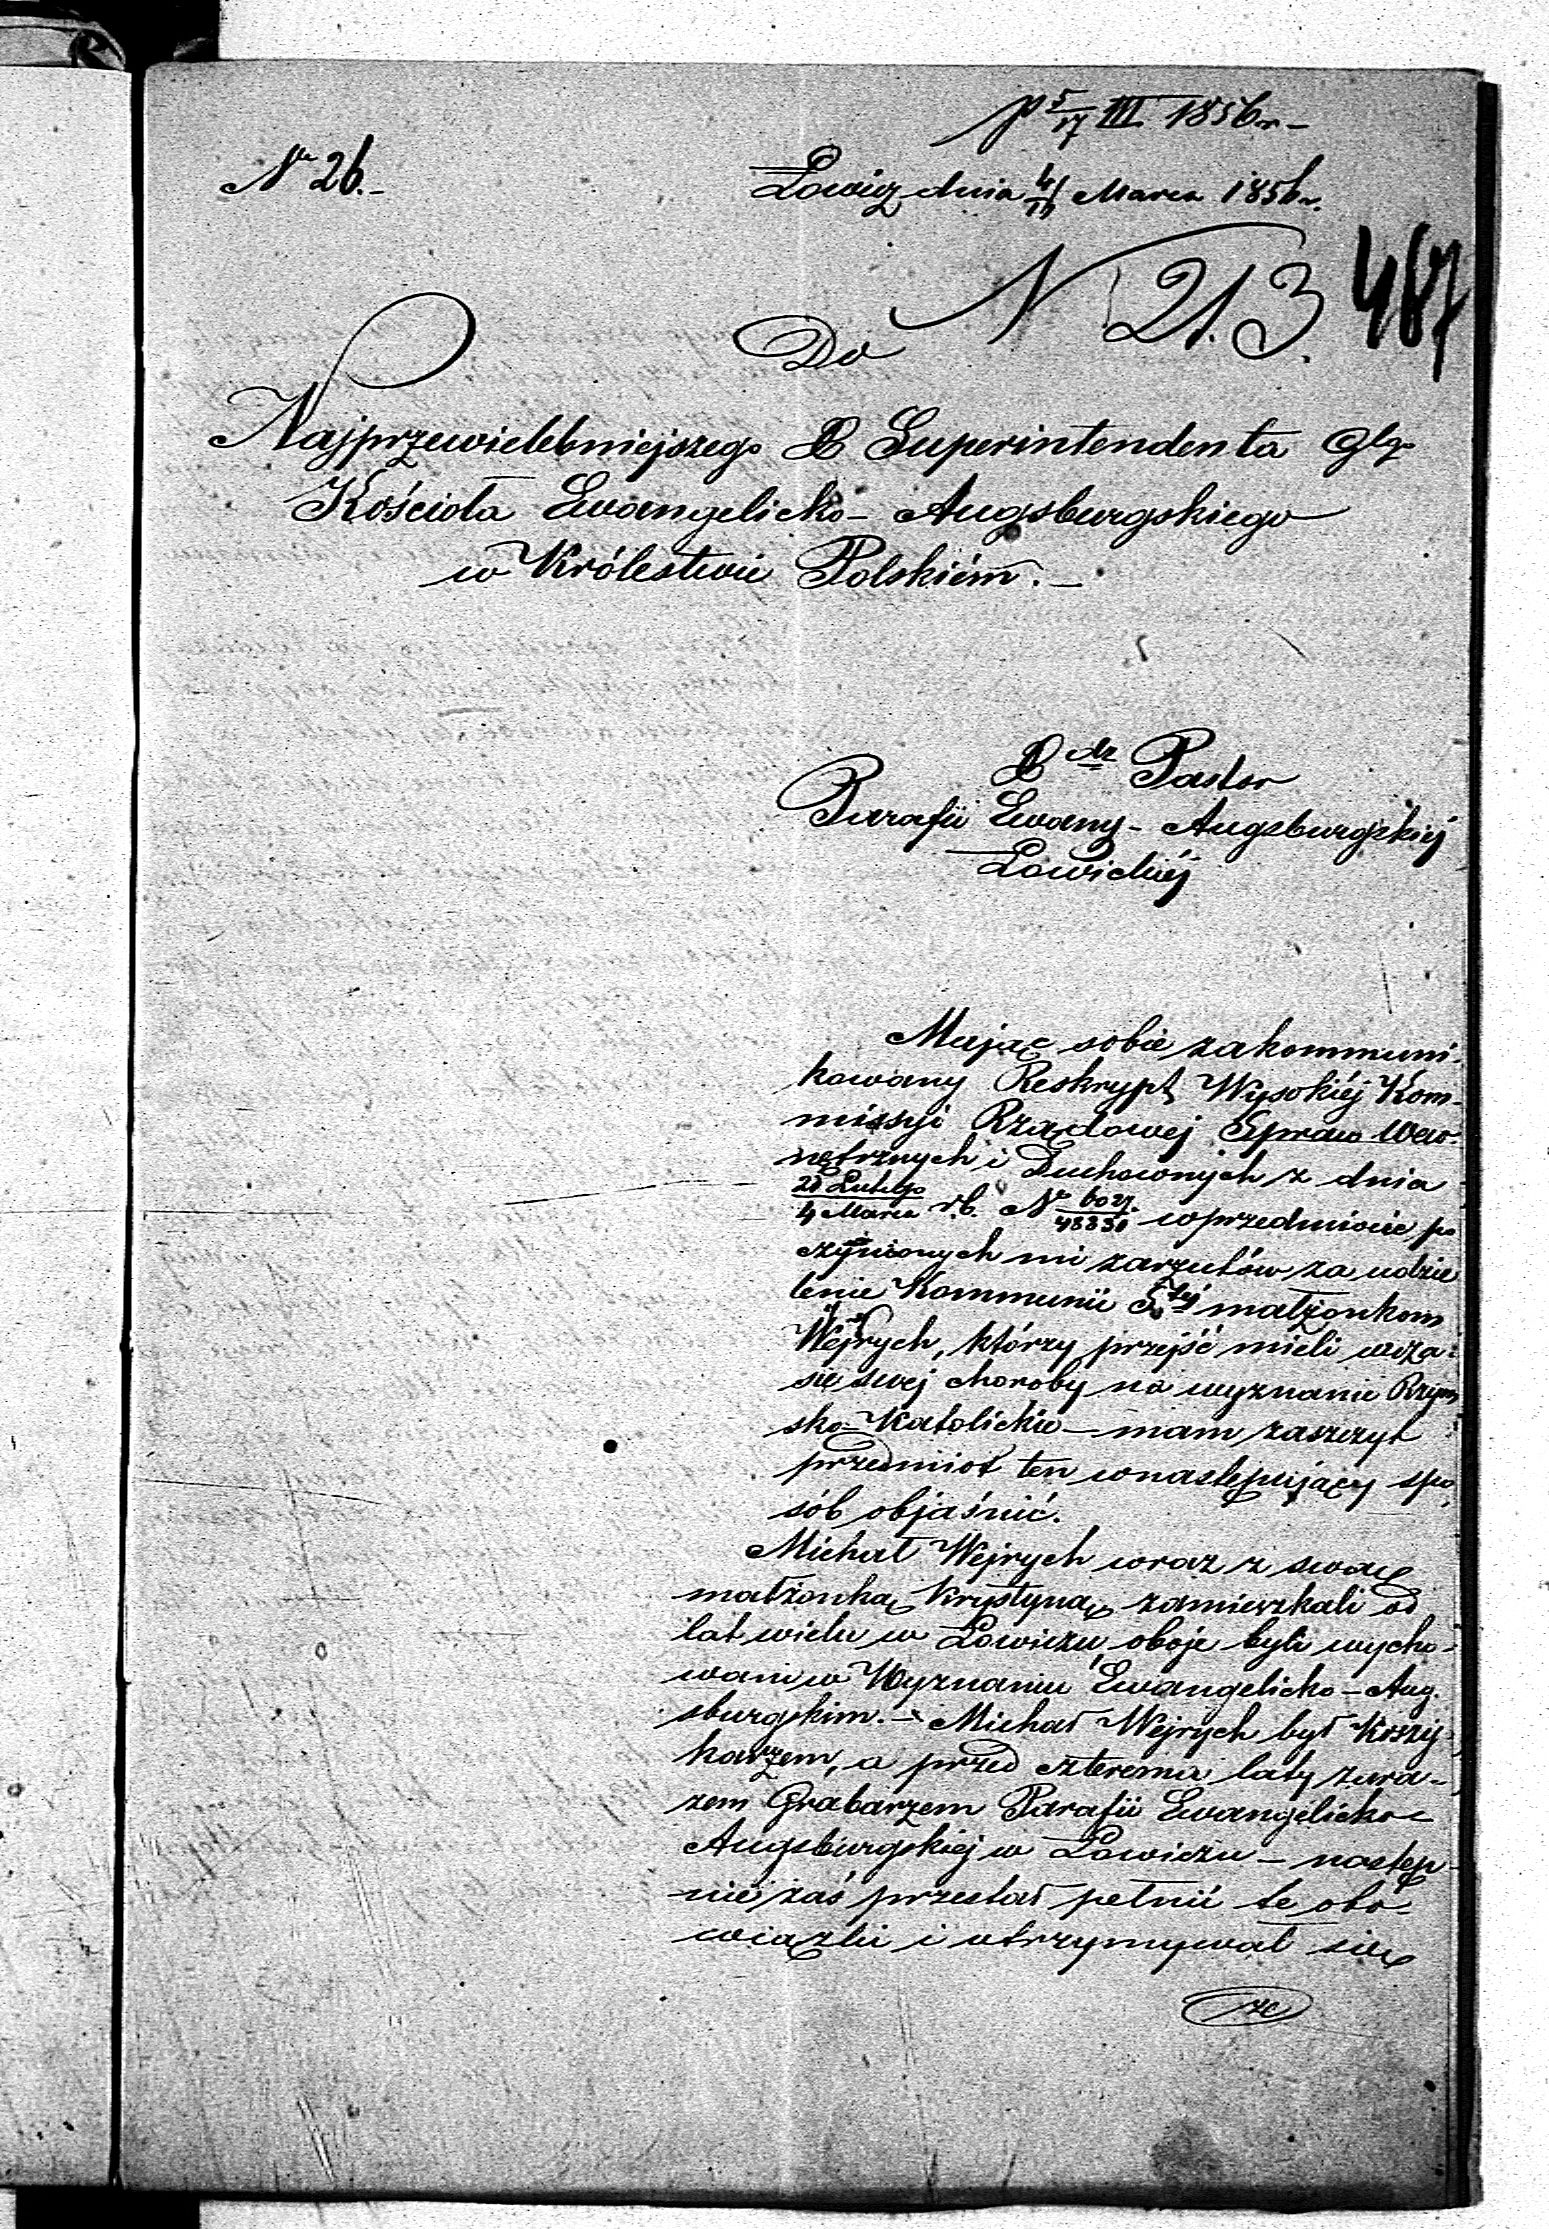 p 5/17 III 1856 r. –
№ 26. –
Łowicz dnia 4/16 Marca 1856 r.
N 213.
467
Do
Najprzewielebniejszego X Superintendenta Głgo
Kościoła Ewangelicko – Augsburgskiego
w Królestwie Polskiém. –
Xdz Pastor
Parafii Ewang – Augsburgskiej
Łowickiéj
Mając sobie zakommuni-
kowany Reskrypt Wysokiéj Kom-
missyi Rządowej Spraw Wew-
nętrznych i Duchownych z dnia
21 Lutego/4 Marca r.b. № wprzedmiocie po
czynionych mi zarzutów za udzie
lenie Kommunii Stéj małżonkom
Wejrych, którzy przejść mieli wcza-
sie swej choroby na wyznanie Rzym
sko-Katolickie – mam zaszczyt
przedmiot ten wnastępujący spo-
sób objaśnić.
Michał Wejrych wraz z swą
małżonką Krystyną zamieszkali od
lat wielu w Łowiczu, oboje byli wycho-
wani w Wyznaniu Ewangelicko – Aug-
sburgskim. – Michał Wejrych był Koszy-
karzem, a przed czterema laty zara-
zem Grabarzem Parafii Ewangelicko –
Augsburgskiej w Łowiczu – następ-
nie zaś przestał pełnić te obo-
wiązki i utrzymywał się
ze